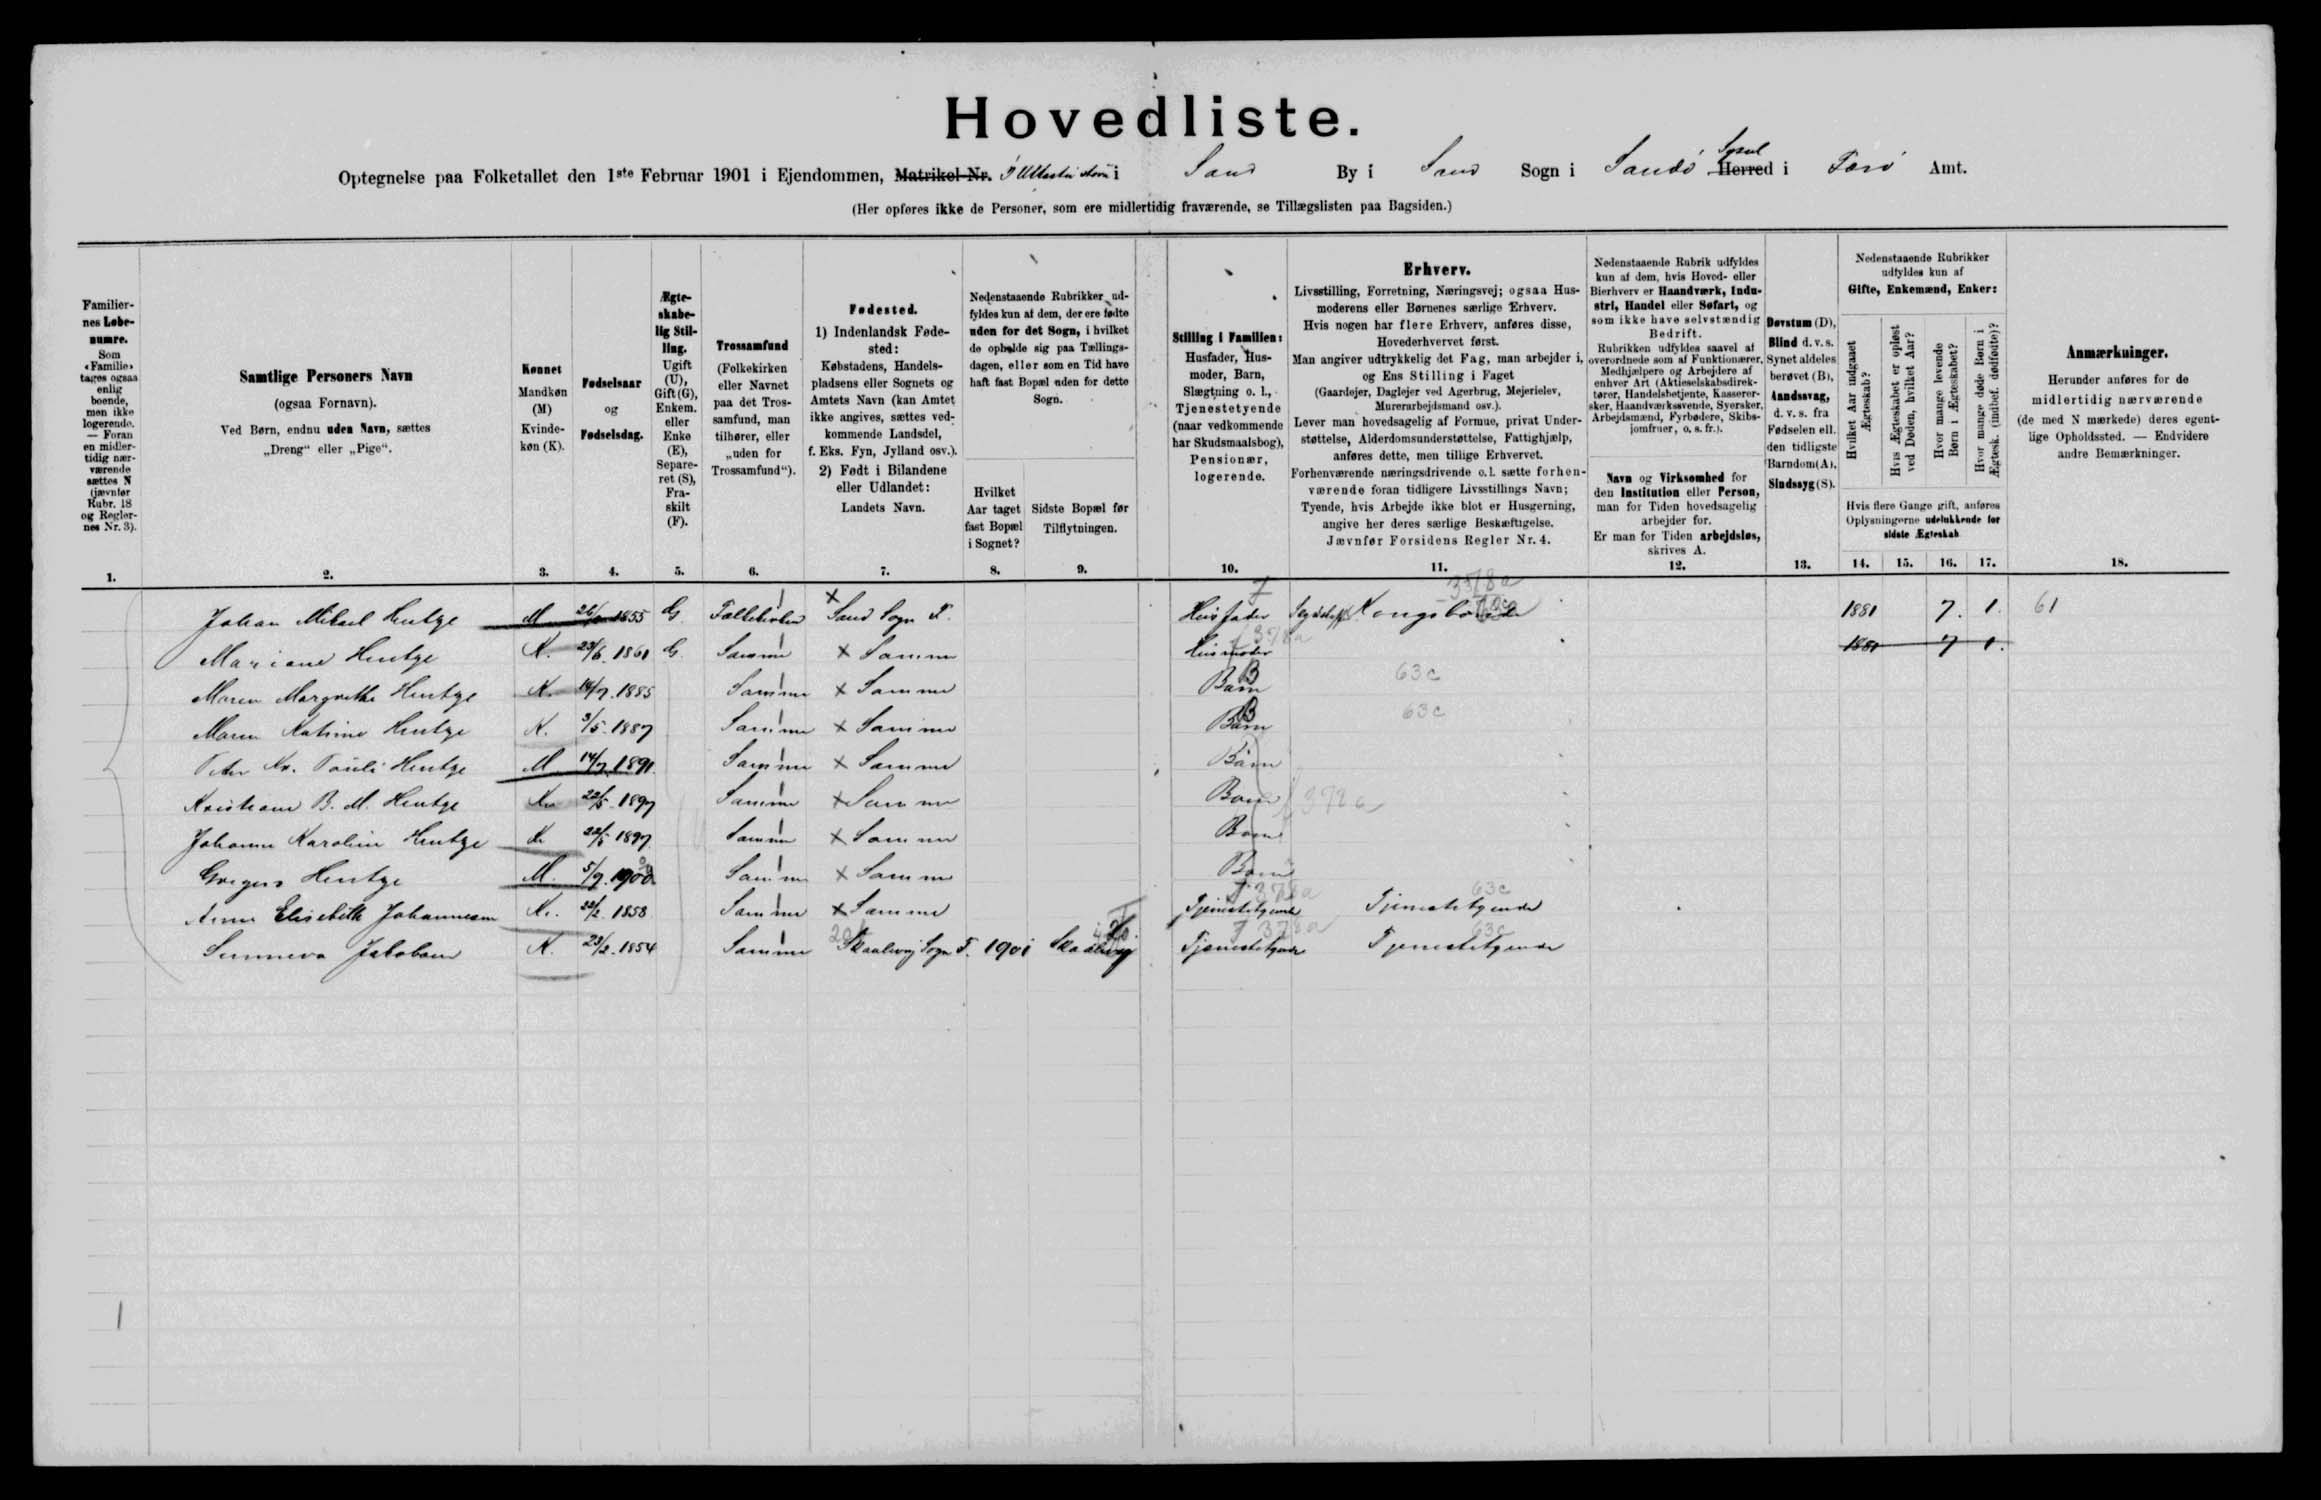 Hovedliste.
Optegnelse paa Folketallet den 1ste Februar 1901 i Ejendommen, Matrikel-Nr. i Sand By i Sand Sogn i Sandö Syssel Herred i Færö Amt.
(Her opføres ikke de Personer, som ere midlertidig fraværende, se Tillægslisten paa Bagsiden.)
Familiernes Løbenumre. Som «Familie» tages ogsaa enlig boende, men ikke logerende. — Foran en midlertidig nærværende sættes N (jævnfør Rubr. 18 og Reglernes Nr. 3).
Samtlige Personers Navn (ogsaa Fornavn). Ved Børn, endnu uden Navn, sættes „Dreng“ eller „Pige“.
Kønnet Mandkøn (M) Kvindekøn (K).
Fødselsaar og Fødselsdag.
Ægteskabelig Stilling. Ugift (U), Gift (G), Enkem. eller Enke (E), Separeret (S), Fraskilt (F).
Trossamfund (Folkekirken eller Navnet paa det Trossamfund, man tilhører, eller „uden for Trossamfund“).
Fødested. 1) Indenlandsk Fødested: Købstadens, Handelspladsens eller Sognets og Amtets Navn (kan Amtet ikke angives, sættes vedkommende Landsdel, f. Eks. Fyn, Jylland osv.). 2) Født i Bilandene eller Udlandet: Landets Navn.
Nedenstaaende Rubrikker udfyldes kun af dem, der ere fødte uden for det Sogn, i hvilket de opholde sig paa Tællingsdagen, eller som en Tid have haft fast Bopæl uden for dette Sogn.
Hvilket Aar taget fast Bopæl i Sognet?
Sidste Bopæl før Tilflytningen.
Stilling i Familien: Husfader, Husmoder, Barn, Slægtning o. l., Tjenestetyende (naar vedkommende har Skudsmaalsbog), Pensionær, logerende.
Erhverv.
Livsstilling, Forretning, Næringsvej; ogsaa Husmoderens eller Børnenes særlige Erhverv.
Hvis nogen har flere Erhverv, anføres disse, Hovederhvervet først.
Man angiver udtrykkelig det Fag, man arbejder i, og Ens Stilling i Faget
(Gaardejer, Daglejer ved Agerbrug, Mejerielev, Murerarbejdsmand osv.).
Lever man hovedsagelig af Formue, privat Understøttelse, Alderdomsunderstøttelse, Fattighjælp, anføres dette, men tillige Erhvervet.
Forhenværende næringsdrivende o. l. sætte forhenværende foran tidligere Livsstillings Navn;
Tyende, hvis Arbejde ikke blot er Husgerning, angive her deres særlige Beskæftigelse.
Jævnfør Forsidens Regler Nr. 4.
Nedenstaaende Rubrik udfyldes kun af dem, hvis Hoved- eller Bierhverv er Haandværk, Industri, Handel eller Søfart, og som ikke have selvstændig Bedrift.
Rubrikken udfyldes saavel af overordnede som af Funktionærer, Medhjælpere og Arbejdere af enhver Art (Aktieselskabsdirektører, Handelsbetjente, Kasserersker, Haandværkssvende, Syersker, Arbejdsmænd, Fyrbødere, Skibsjomfruer, o. s. fr.).
Navn og Virksomhed for den Institution eller Person, man for Tiden hovedsagelig arbejder for.
Er man for Tiden arbejdsløs, skrives A.
Døvstum (D), Blind d. v. s. Synet aldeles berøvet (B), Aandssvag, d. v. s. fra Fødselen ell. den tidligste Barndom (A), Sindssyg (S).
Nedenstaaende Rubrikker udfyldes kun af Gifte, Enkemænd, Enker:
Hvilket Aar indgaaet Ægteskab?
Hvis Ægteskabet er opløst ved Døden, hvilket Aar?
Hvor mange levende Børn i Ægteskabet?
Hvor mange døde Børn i Ægtesk. (indbef. dødfødte)?
Hvis flere Gange gift, anføres Oplysningerne udelukkende for sidste Ægteskab
Anmærkninger. Herunder anføres for de midlertidig nærværende (de med N mærkede) deres egentlige Opholdssted. — Endvidere andre Bemærkninger.
1. 2. 3. 4. 5. 6. 7. 8. 9. 10. 11. 12. 13. 14. 15. 16. 17. 18.
Johan Mikael Hentze M 1855 G. Folkekirken Sand Sogn F. Husfader Kongsbonde 1881 7. 1. 61
Mariane Hentze K. 23/6. 1861 G. Samme Samme Husmoder 1881 7 1.
Maren Margrethe Hentze K. 14/7. 1885 Samme Samme Barn 63c
Maren Katrine Hentze K. 3/5. 1887 Samme Samme Barn 63c
Peter Kr. Pauli Hentze M 14/7. 1891. Samme Samme Barn
Kristiane B. M. Hentze K. 22/5. 1897 Samme Samme Barn 378a
Johanne Karoline Hentze K 22/5 1897 Samme Samme Barn
Gregers Hentze M. 5/9. 1900 Samme Samme Barn
Anna Elisebeth Johannesen K. 22/2. 1858 Samme Samme Tjenestetyende Tjenestetyende 63c
Sunneva Jakobsen K. 23/2. 1854 Samme Skaalevig Sogn F. 1901 Skaalevig Tjenestetyende Tjenestetyende 63c